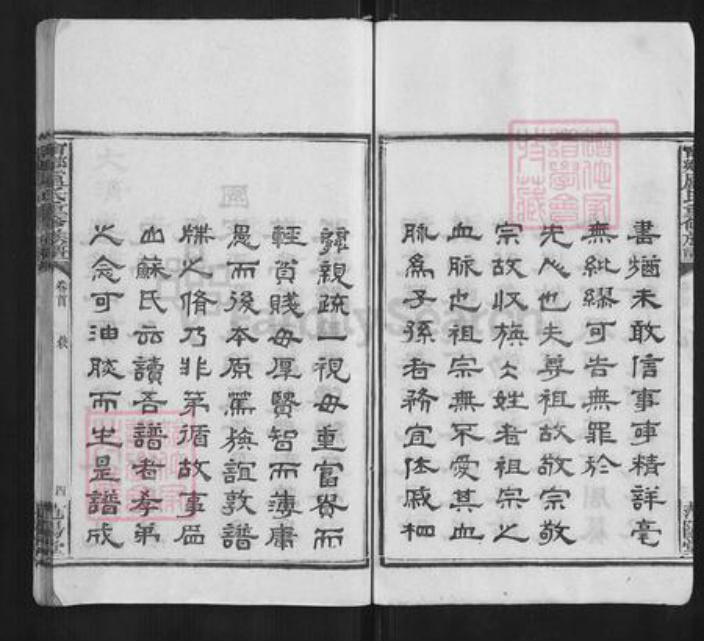 書猶未敢信事事精詳毫
無紕繆可告無罪於
先人也夫尊祖故敬宗敬
宗故收族姓者祖宗之
血脉也祖宗無不愛其血
脉爲子孫者務宜休戚相
親疏一視毋重富貴而
輕貧賤毋厚賢智而薄庸
愚而後本原篤族誼敦譜
牒之脩乃非苐循故事
蘇氏云讀吾譜者孝弟
之念可油然而生是譜成
卷首
四